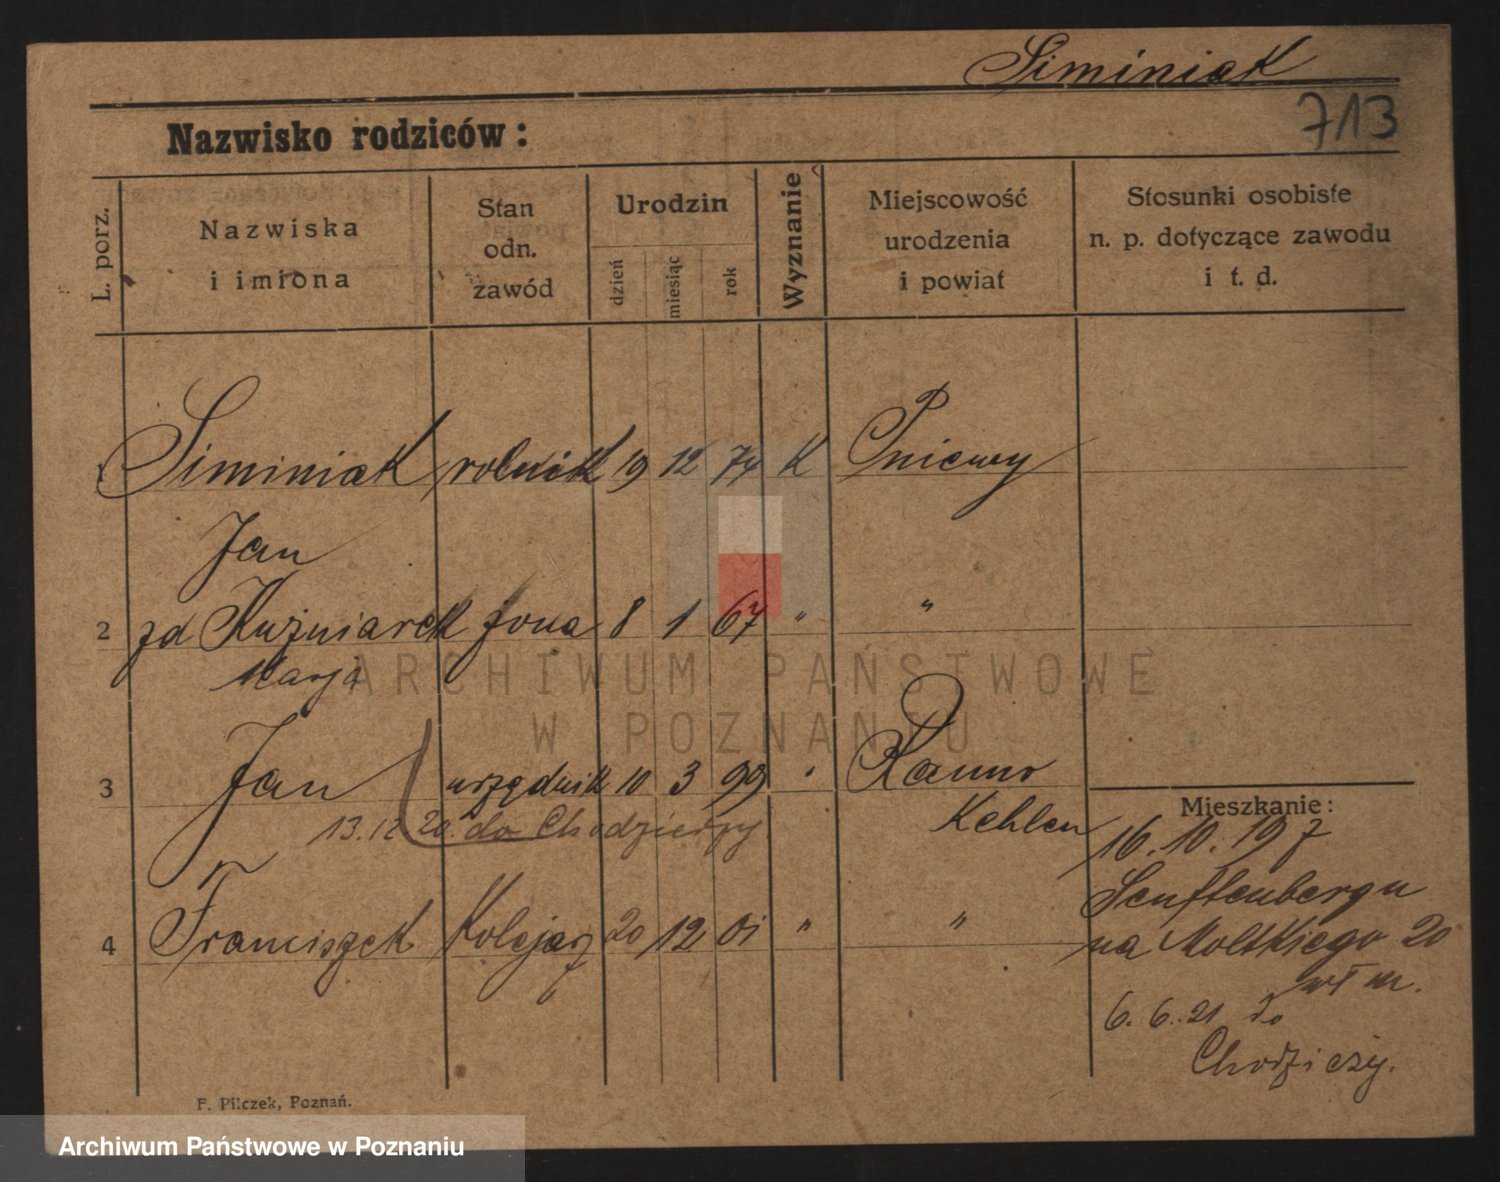 Siminiak
713
Nazwisko rodziców:
L. porz.
Nazwiska
i imiona
Stan
odn.
zawód
Urodzin
dzień
miesiąc
rok
Wyznanie
Miejscowość
urodzenia
i powiat
Stosunki osobiste
n. p. dotyczące zawodu
i t. d.
1 Siminiak rolnik 19 12 74 K Pniewy
Jan
2 zd Kuźniarek żona 8 1 67 " "
Marja
3 Jan urzędnik 10 3 99 "
Kehlen
13.12 20. do Chodzieży
4 Franciszek Kolejarz 20 12 01 " "
Mieszkanie:
16.10.19 z
Senftenbergu
na Moltkiego 20
6.6.21 do
Chodzieży.
F. Pilczek, Poznań.
ARCHIWUM PAŃSTWOWE
W POZNANIU
Archiwum Państwowe w Poznaniu